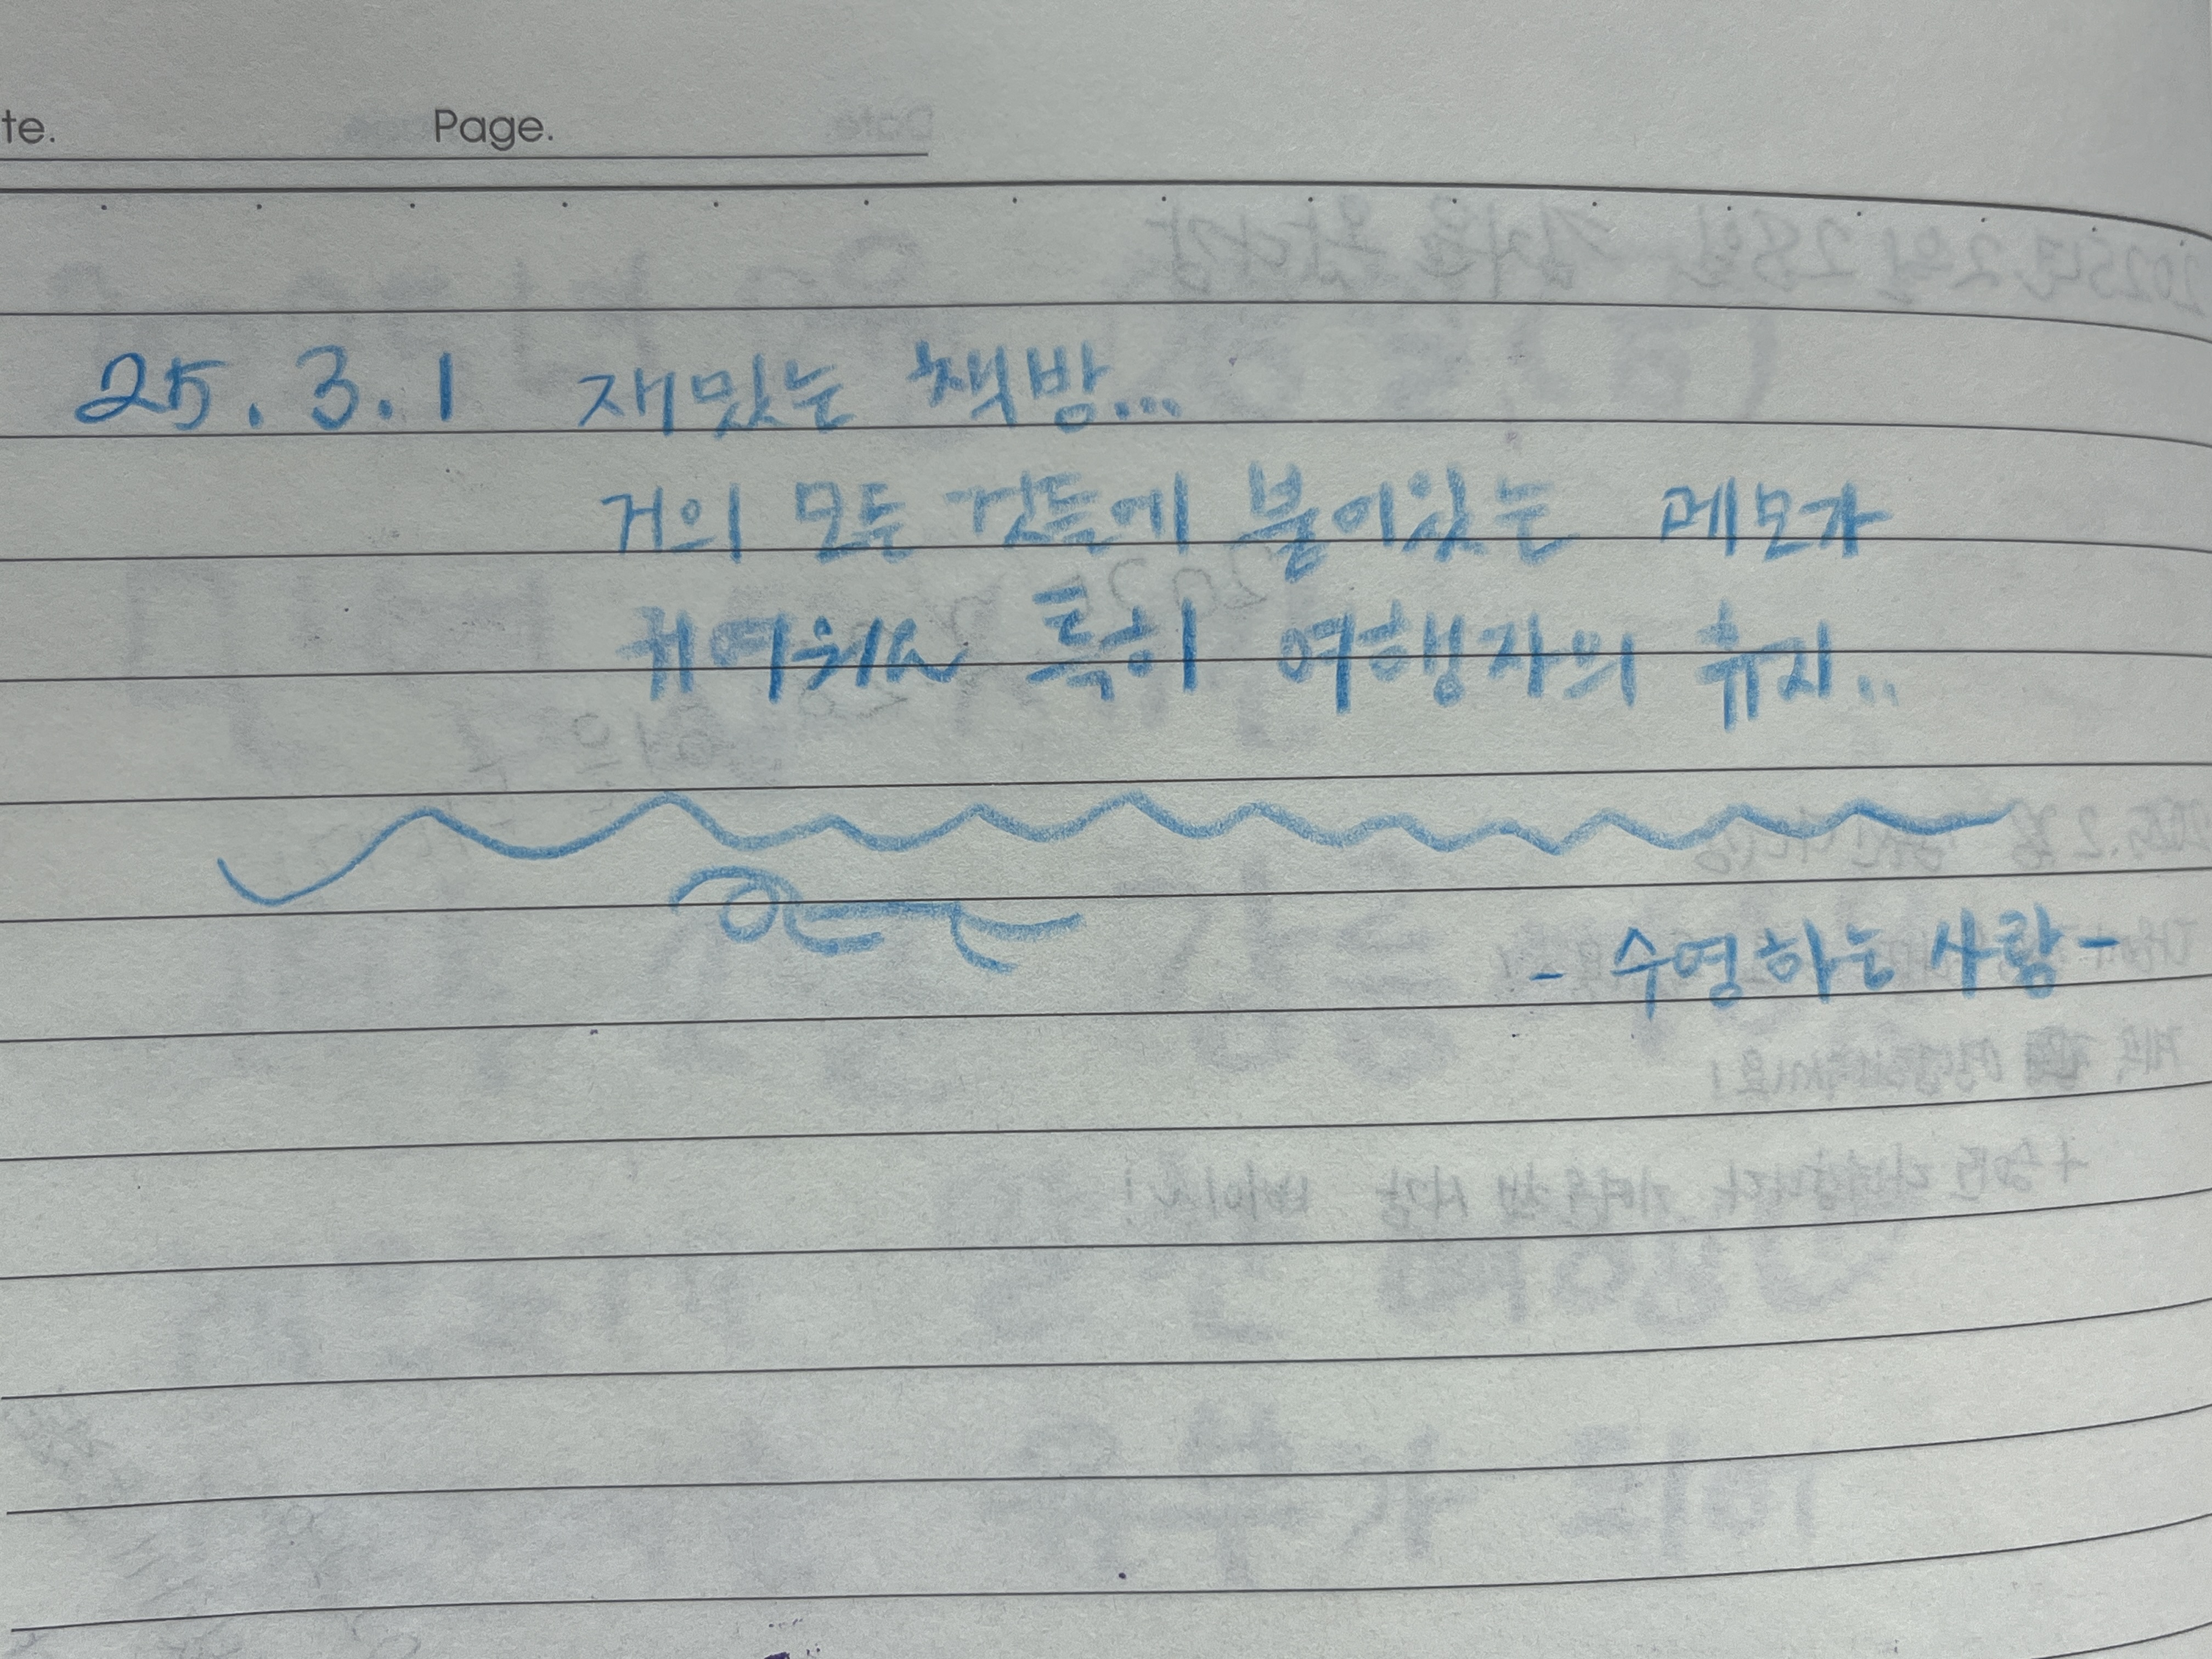 te. Page.
25.3.1 재밌는 책방...
거의 모든 것들에 붙어있는 메모가
귀여워ㅅ 특히 여행자의 휴지..
- 수영하는 사람 -